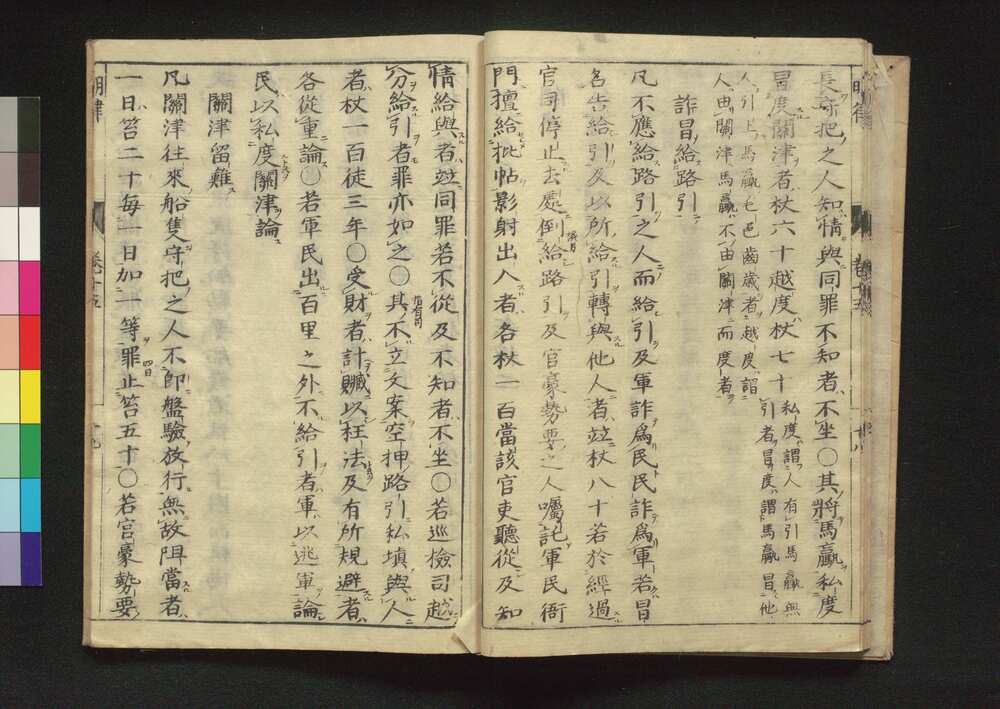 長守把之人知情與同罪不知者不坐○其將馬驘私度
冒度關津者杖六十越度杖七十私度謂人有引馬驘無
引者冒度謂馬驘冒他
人引上馬驘毛色齒歲者越度謂
人由關津馬驘不由關津而度者
詐冒給路引
凡不應給路引之人而給引及軍詐爲民民詐爲軍若冒
名告給引及以所給引轉與他人者竝杖八十若於經過
官司停止去處倒給路引及官豪勢要之人囑託軍民衙
門擅給批帖影射出入者各杖一百當該官吏聽從及知
情給與者竝同罪若不從及不知者不坐○若巡檢司越
分給引者罪亦如之○其不立文案空押路引私塡與人
者杖一百徒三年○受財者計贓以枉法及有所規避者
各從重論○若軍民出百里之外不給引者軍以逃軍論
民以私度關津論
關津留難
凡關津往來船隻守把之人不即盤驗放行無故阻當者
一日笞二十每一日加一等罪止笞五十○若官豪勢要
明律
卷十五